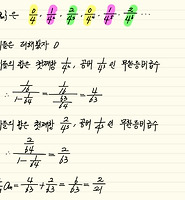 은 0/4, 1/4², 2/4³, 0/4⁴, 1/4⁵, 2/4⁶ ...
0
합은 첫째항 1/4², 공비 1/4³인 무한등비급수
∴ (1/16)/(1-1/64) = (1/16)/(63/64) = 4/63
합은 첫째항 2/4³, 공비 1/4³인 무한등비급수
∴ (2/64)/(1-1/64) = 2/63
= 4/63 + 2/63 = 6/63 = 2/21